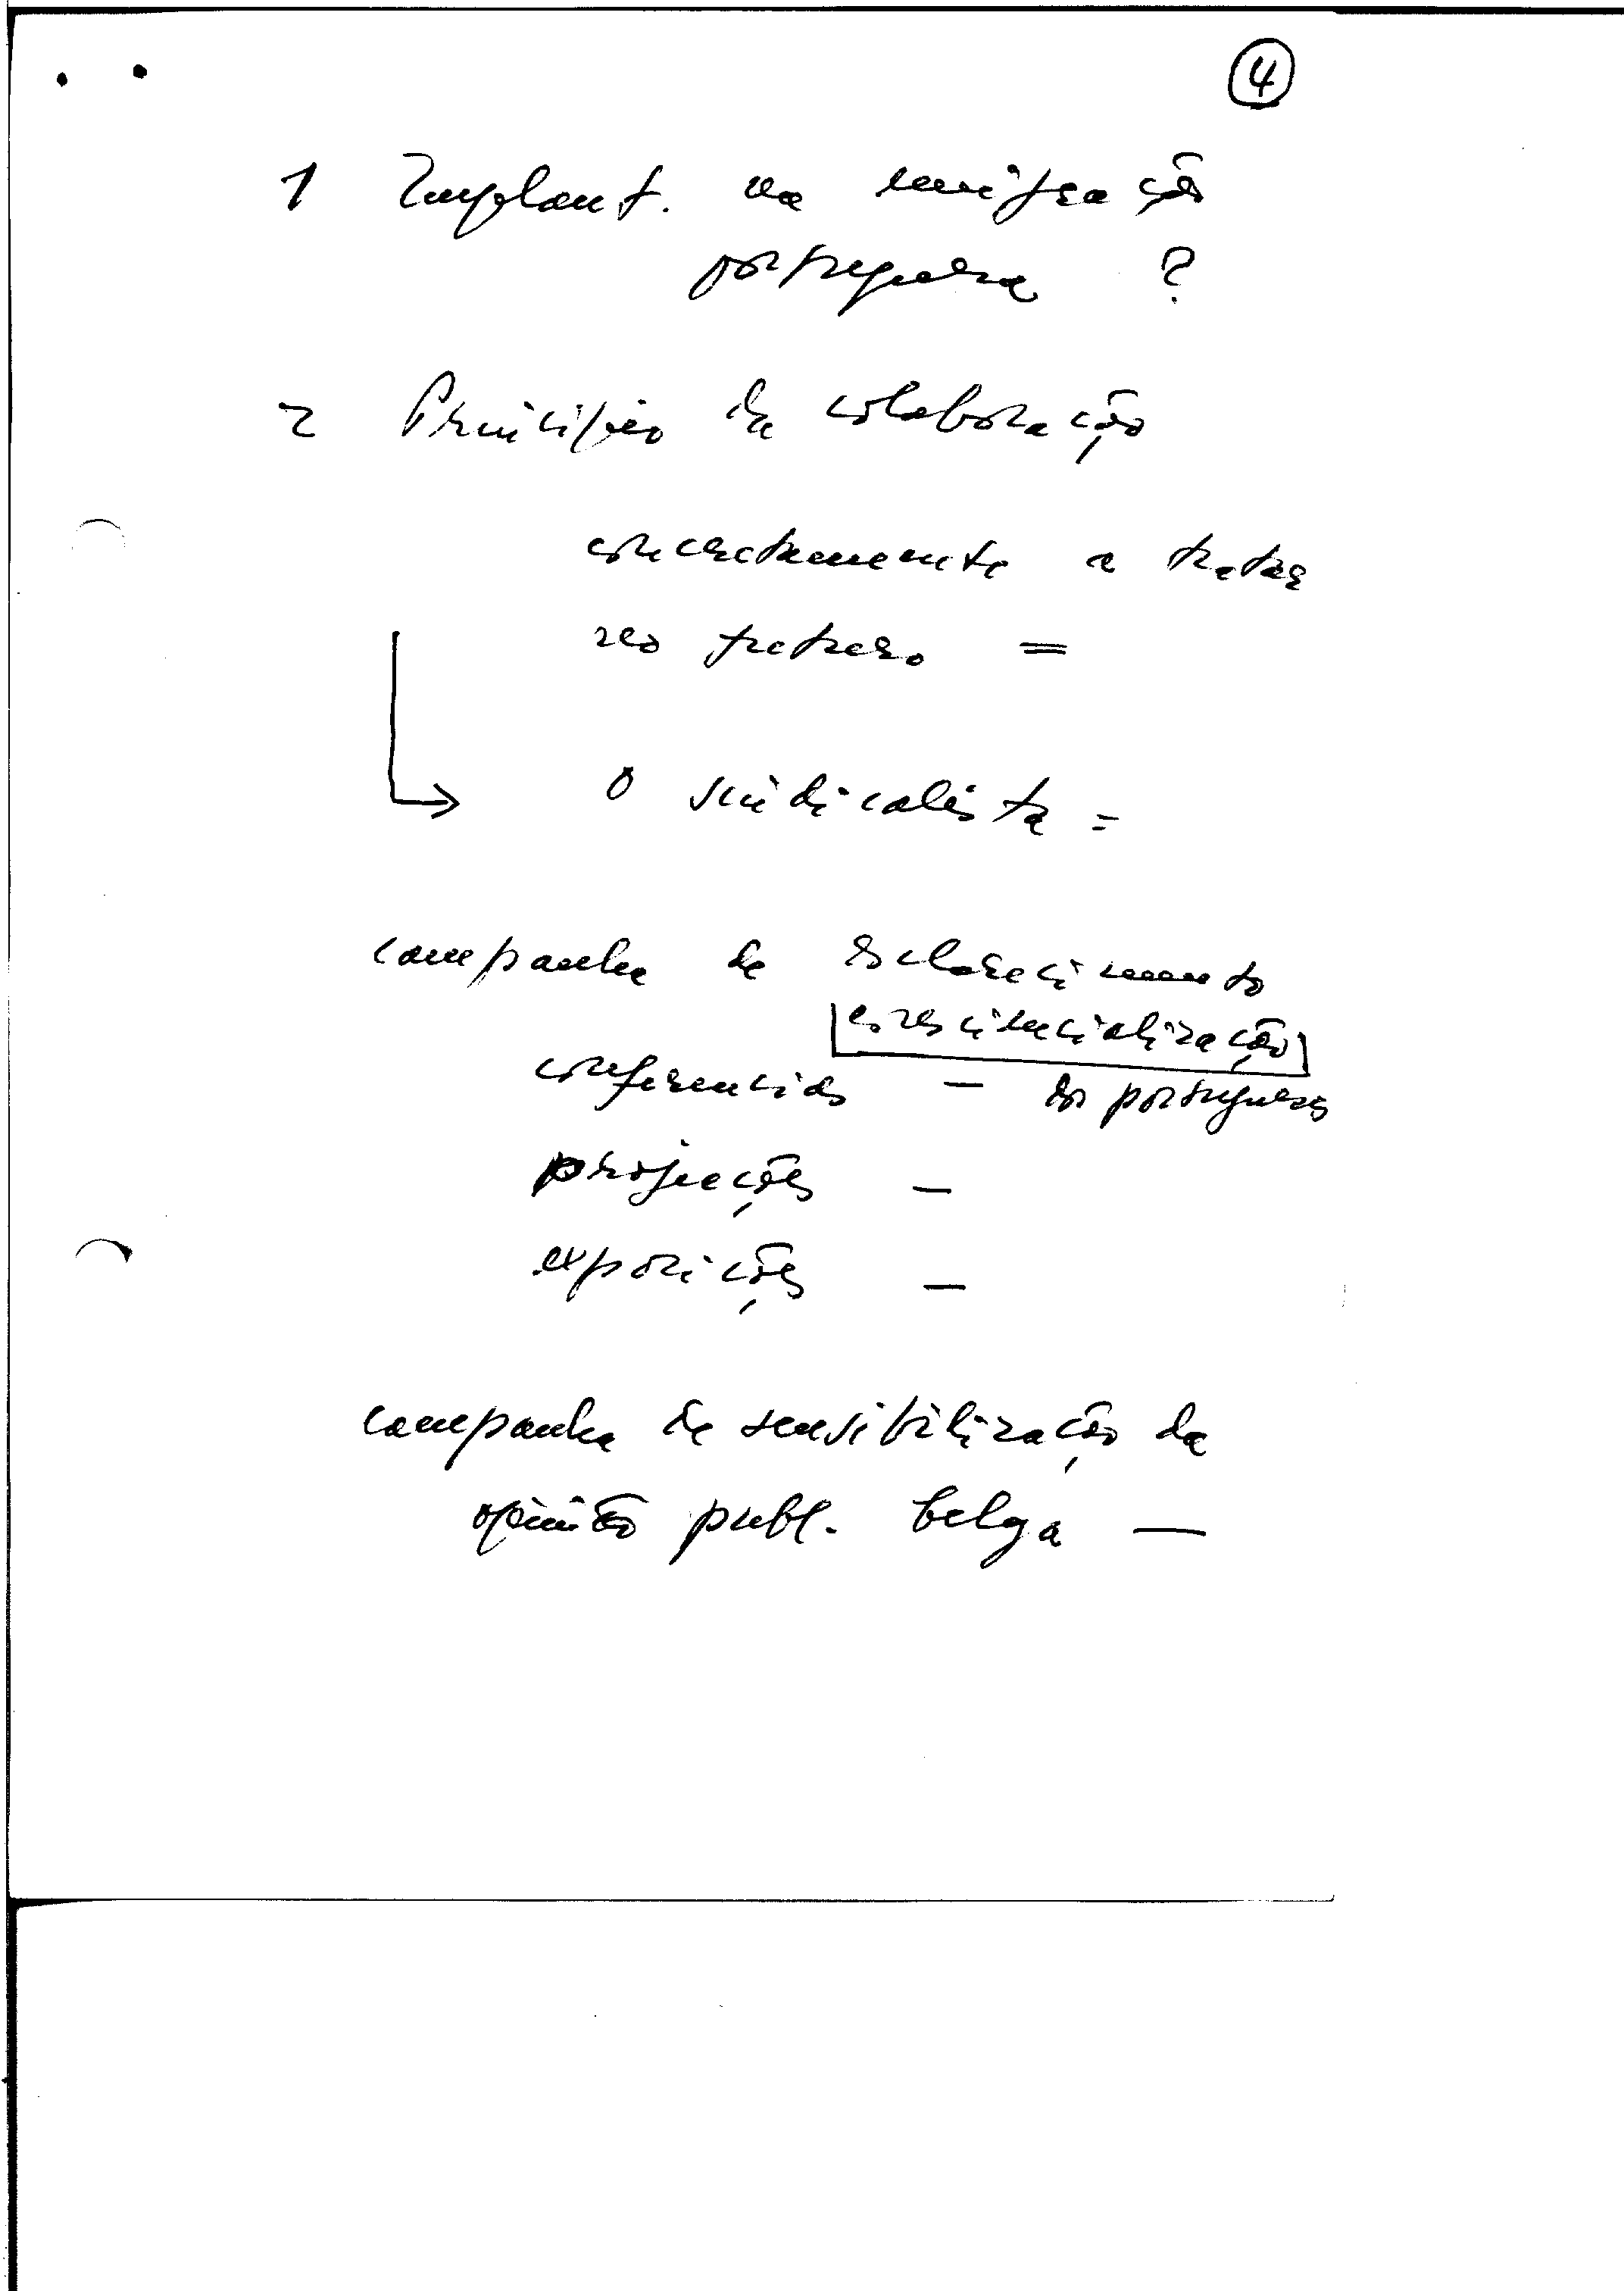 4
1 Implant. na emigração
portuguesa ?
2 Princípio da colaboração
concretamente a tratar
no futuro =
O sindicalista =
campanha de esclarecimento
consciencialização
conferencias — dos portugueses
projecções —
exposições —
campanha de sensibilização da
opinião publ. belga —